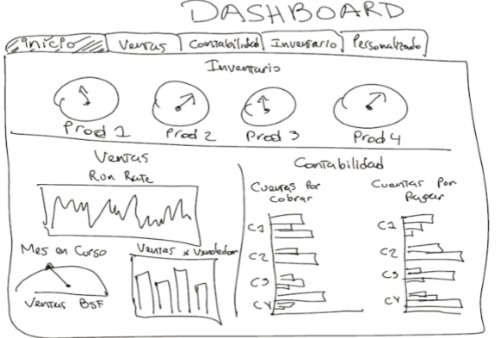 DASHBOARD
Inicio Ventas Contabilidad Inventario Personalizado
Inventario
Prod 1 Prod 2 Prod 3 Prod 4
Ventas
Run Rate
Mes en Curso
Ventas BsF
Ventas x Vendedor
Contabilidad
Cuentas Por
Cobrar
C1
C2
C3
C4
Cuentas Por
Pagar
C1
C2
C3
C4